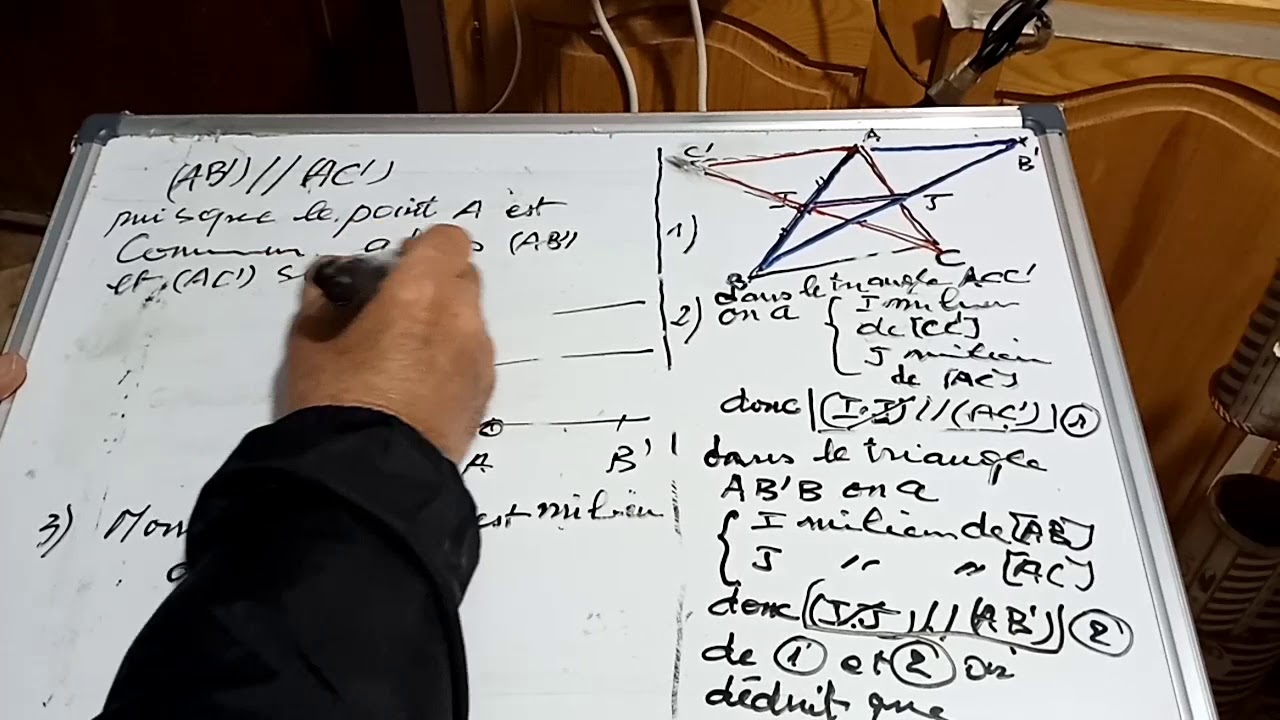 (AB') // (AC')
puisque le point A est
Commun (AB')
et (AC')
A B'
3) est milieu
C' A B'
I J
B C
1)
2) dans le triangle ACC'
on a { I milieu
de [CC']
J milieu
de [AC]
donc (I.J) // (AC') 1
dans le triangle
AB'B on a
{ I milieu de [AB]
J " " [AC]
donc (I.J) // (AB') 2
de 1 et 2 on
déduit que